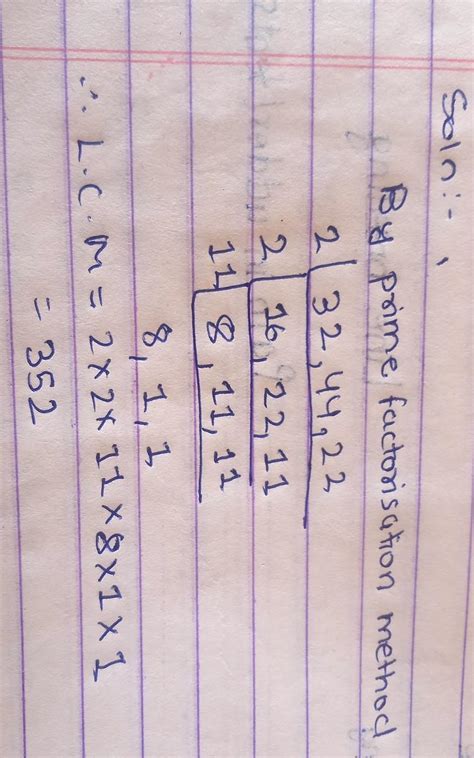 Soln:-,
By prime factorisation method
2 | 32, 44, 22
2 | 16, 22, 11
11 | 8, 11, 11
8, 1, 1
∴ L.C.M = 2×2×11×8×1×1
= 352